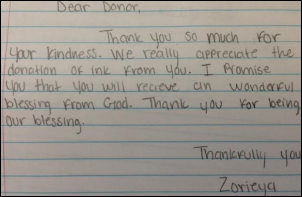 Dear Donor,
Thank you so much for
your kindness. We really appreciate the
donation of ink from you. I Promise
you that you will recieve an wonderful
blessing from God. Thank you for being
our blessing.
Thankfully you
Zorieya